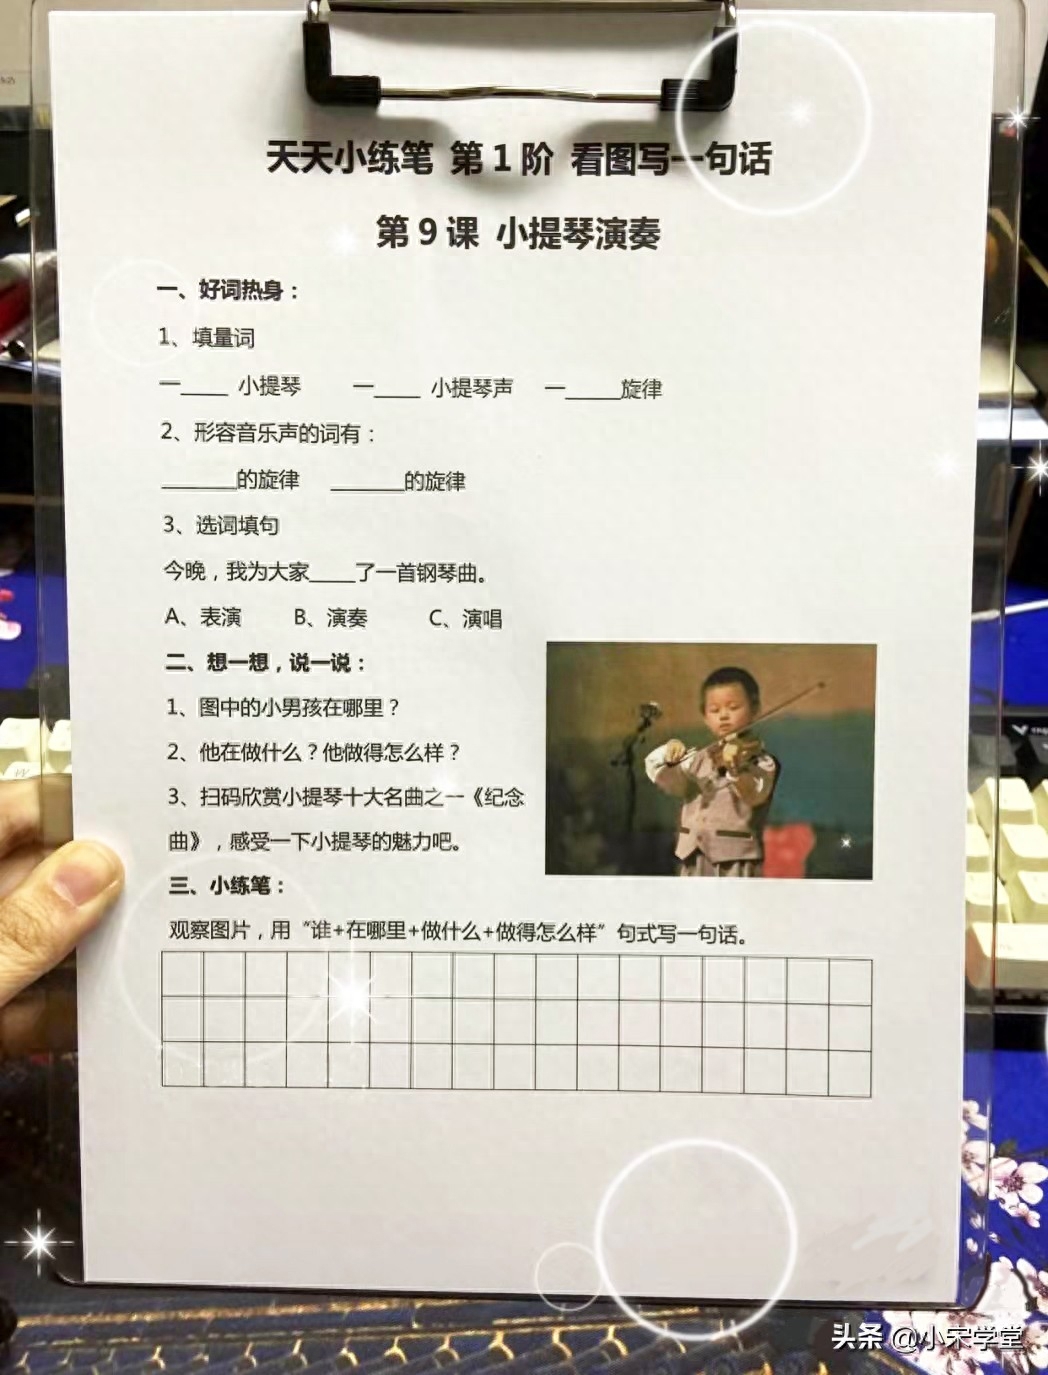 天天小练笔 第1阶 看图写一句话
第9课 小提琴演奏
一、好词热身：
1、填量词
一____ 小提琴 一____ 小提琴声 一_____旋律
2、形容音乐声的词有：
_______的旋律 _______的旋律
3、选词填句
今晚，我为大家____了一首钢琴曲。
A、表演 B、演奏 C、演唱
二、想一想，说一说：
1、图中的小男孩在哪里？
2、他在做什么？他做得怎么样？
3、扫码欣赏小提琴十大名曲之一《纪念
曲》，感受一下小提琴的魅力吧。
三、小练笔：
观察图片，用“谁+在哪里+做什么+做得怎么样”句式写一句话。
头条 @小宋学堂